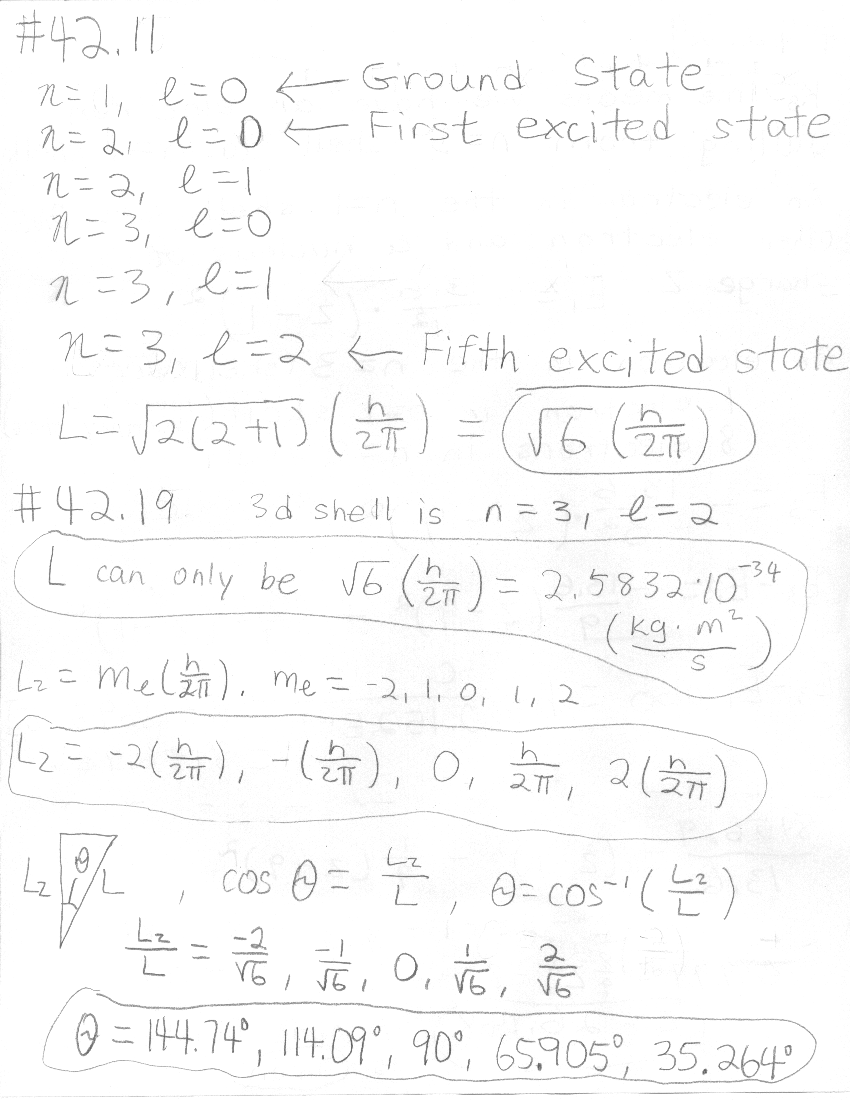 #42.11
n=1, ℓ=0 ← Ground State
n=2, ℓ=0 ← First excited state
n=2, ℓ=1
n=3, ℓ=0
n=3, ℓ=1
n=3, ℓ=2 ← Fifth excited state
L=√2(2+1) (h/2π) = √6 (h/2π)
#42.19 3d shell is n=3, ℓ=2
L can only be √6 (h/2π) = 2.5832·10^-34
(kg·m²/s)
Lz = mℓ(h/2π). mℓ = -2, 1, 0, 1, 2
Lz = -2(h/2π), -(h/2π), 0, h/2π, 2(h/2π)
Lz θ L , cos θ = Lz/L , θ=cos⁻¹(Lz/L)
Lz/L = -2/√6, -1/√6, 0, 1/√6, 2/√6
θ = 144.74°, 114.09°, 90°, 65.905°, 35.264°